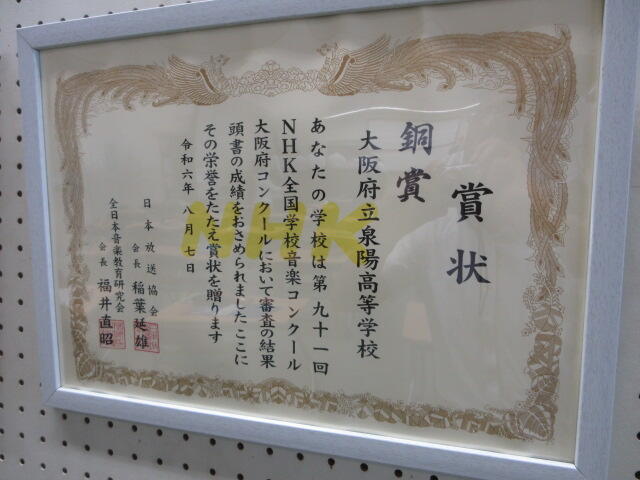 賞状
銅賞
大阪府立泉陽高等学校
あなたの学校は第九十一回
NHK全国学校音楽コンクール
大阪府コンクールにおいて審査の結果
頭書の成績をおさめられましたここに
その栄誉をたたえ賞状を贈ります
令和六年八月七日
日本放送協会
会長 稲葉延雄
全日本音楽教育研究会
会長 福井直昭
NHK